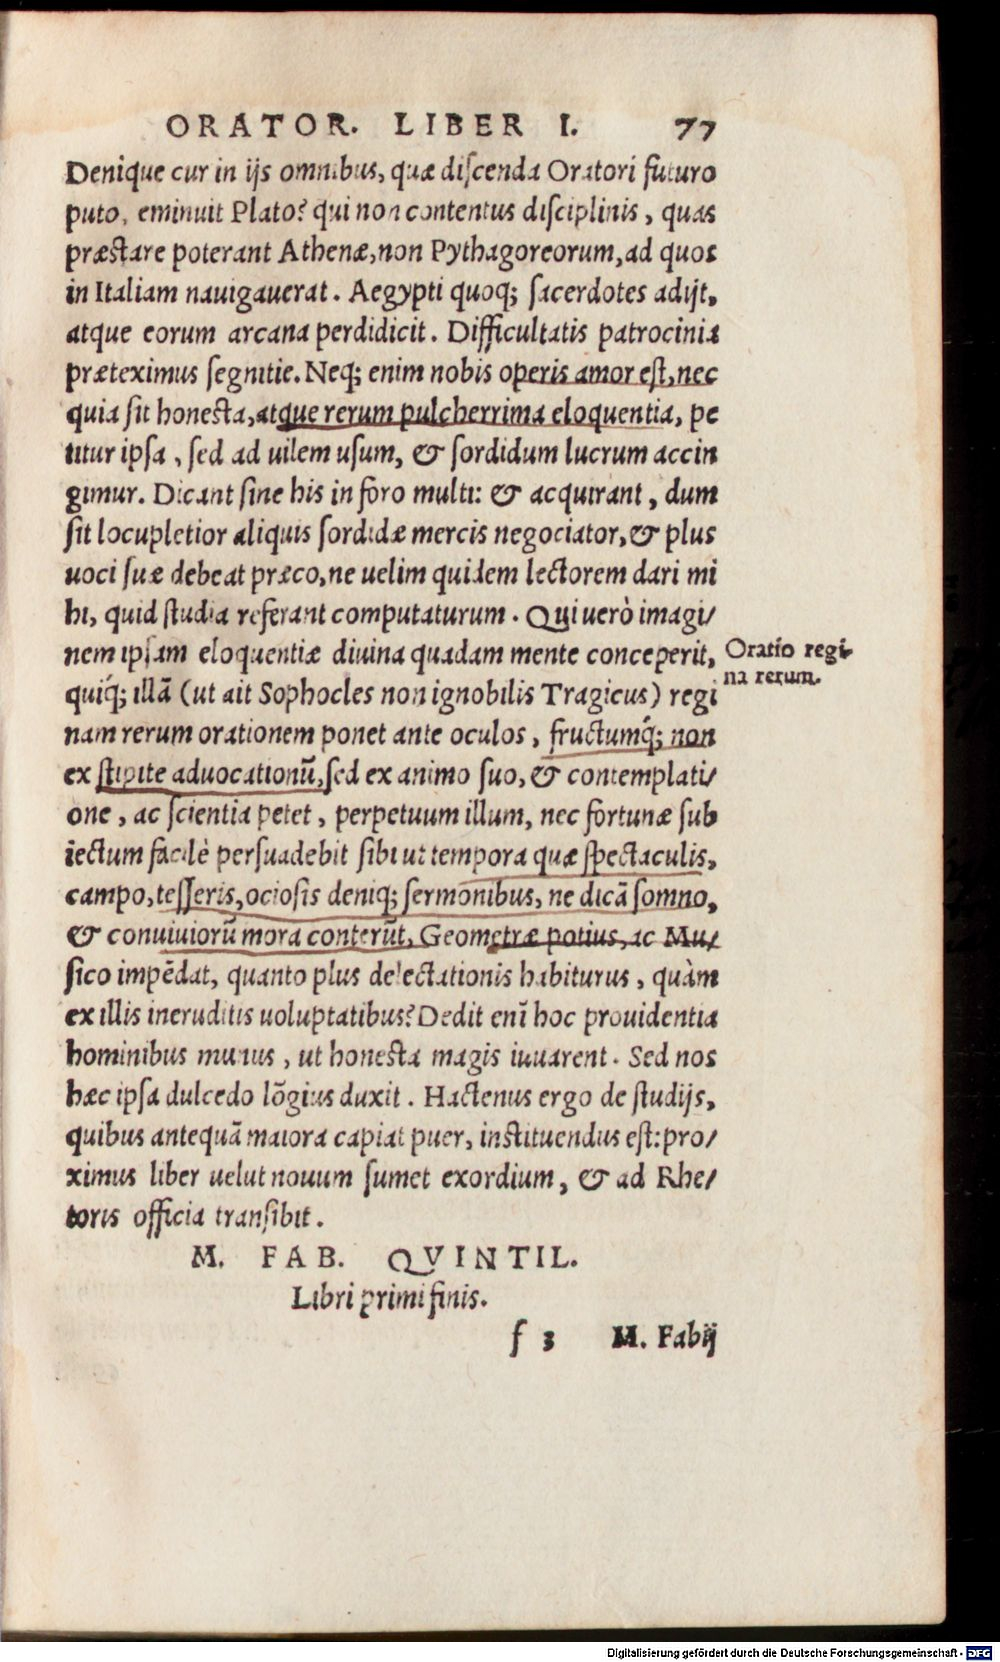 ORATOR. LIBER I. 77
Denique cur in ijs omnibus, quæ discenda Oratori futuro
puto, eminuit Plato? qui non contentus disciplinis, quas
præstare poterant Athenæ, non Pythagoreorum, ad quos
in Italiam nauigauerat. Aegypti quoq; sacerdotes adijt,
atque eorum arcana perdidicit. Difficultatis patrocinia
præteximus segnitie. Neq; enim nobis operis amor est, nec
quia sit honesta, atque rerum pulcherrima eloquentia, pe
titur ipsa, sed ad uilem usum, & sordidum lucrum accin
gimur. Dicant sine his in foro multi: & acquirant, dum
sit locupletior aliquis sordidæ mercis negociator, & plus
uoci suæ debeat præco, ne uelim quidem lectorem dari mi
hi, quid studia referant computaturum. Qui uerò imagi/
nem ipsam eloquentiæ diuina quadam mente conceperit,
quiq́; illã (ut ait Sophocles non ignobilis Tragicus) regi
nam rerum orationem ponet ante oculos, fructumq́; non
ex stipite aduocationũ, sed ex animo suo, & contemplati/
one, ac scientia petet, perpetuum illum, nec fortunæ sub
iectum facilè persuadebit sibi ut tempora quæ spectaculis,
campo, tesseris, ociosis deniq; sermonibus, ne dicã somno,
& conuiuiorũ mora conterũt, Geometræ potius, ac Mu/
sico impẽdat, quanto plus delectationis habiturus, quàm
ex illis ineruditis uoluptatibus? Dedit enĩ hoc prouidentia
hominibus munus, ut honesta magis iuuarent. Sed nos
hæc ipsa dulcedo lõgius duxit. Hactenus ergo de studijs,
quibus antequã maiora capiat puer, instituendus est: pro/
ximus liber uelut nouum sumet exordium, & ad Rhe/
toris officia transibit.
M. FAB. QVINTIL.
Libri primi finis.
f 3 M. Fabij
Oratio regi-
na rerum.
Digitalisierung gefördert durch die Deutsche Forschungsgemeinschaft - DFG